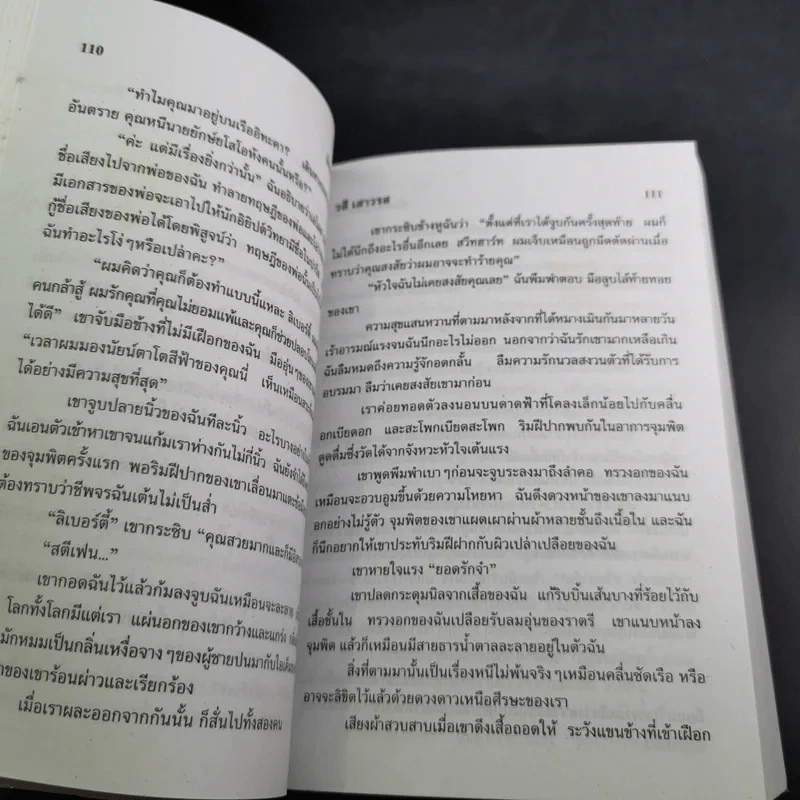 110
“ทำไมคุณมาอยู่บนเรืออิทะคา?
อันตราย คุณหนีนายยักษ์ยโสโอหังคนนั้นหรือ?”
“ค่ะ แต่มีเรื่องยิ่งกว่านั้น” ฉันอธิบาย
ชื่อเสียงไปจากพ่อของฉัน ทำลายทฤษฎีของพ่อ
มีเอกสารของพ่อจะเอาไปให้นักอิยิปต์วิทยามีชื่อ
กู้ชื่อเสียงของพ่อได้โดยพิสูจน์ว่า ทฤษฎีของพ่อนั้น
ฉันทำอะไรโง่ๆหรือเปล่าคะ?”
“ผมคิดว่าคุณก็ต้องทำแบบนี้แหละ ลิเบอร์ตี้
คนกล้าสู้ ผมรักคุณที่คุณไม่ยอมแพ้และคุณก็ช่วย
ได้ดี” เขาจับมือข้างที่ไม่มีเฝือกของฉัน มืออุ่นๆของ
“เวลาผมมองนัยน์ตาโตสีฟ้าของคุณนี่ เห็นเหมือน
ได้อย่างมีความสุขที่สุด”
เขาจูบปลายนิ้วของฉันทีละนิ้ว อะไรบางอย่าง
ฉันเอนตัวเข้าหาเขาจนแก้มเราห่างกันไม่กี่นิ้ว ฉันยัง
ของจุมพิตครั้งแรก พอริมฝีปากของเขาเลื่อนมาแตะ
ต้องทราบว่าชีพจรฉันเต้นไม่เป็นส่ำ
“ลิเบอร์ตี้” เขากระซิบ “คุณสวยมากและก็มี
“สตีเฟน...”
เขากอดฉันไว้แล้วก้มลงจูบฉันเหมือนจะละลาย
โลกทั้งโลกมีแต่เรา แผ่นอกของเขากว้างและแกร่ง
มักหมมเป็นกลิ่นเหงื่อจางๆของผู้ชายปนมากับไอ
ของเขาร้อนผ่าวและเรียกร้อง
เมื่อเราผละออกจากกันนั้น ก็สั่นไปทั้งสองคน
รสี เสาวรส
111
เขากระซิบข้างหูฉันว่า “ตั้งแต่ที่เราได้จูบกันครั้งสุดท้าย ผมก็
ไม่ได้นึกถึงอะไรอื่นอีกเลย สวีทฮาร์ท ผมเจ็บเหมือนถูกมีดตัดผ่านเมื่อ
ทราบว่าคุณสงสัยว่าผมอาจจะทำร้ายคุณ”
“หัวใจฉันไม่เคยสงสัยคุณเลย” ฉันพึมพำตอบ มือลูบไล้ท้ายทอย
ของเขา
ความสุขแสนหวานที่ตามมาหลังจากที่ได้หมางเมินกันมาหลายวัน
เร้าอารมณ์แรงจนฉันนึกอะไรไม่ออก นอกจากว่าฉันรักเขามากเหลือเกิน
ฉันลืมหมดถึงความรู้จักอดกลั้น ลืมความรักนวลสงวนตัวที่ได้รับการ
อบรมมา ลืมว่าเคยสงสัยเขามาก่อน
เราค่อยทอดตัวลงนอนบนดาดฟ้าที่โคลงเล็กน้อยไปกับคลื่น
อกเบียดอก และสะโพกเบียดสะโพก ริมฝีปากพบกันในอาการจุมพิต
ดูดดื่มซึ่งวัดได้จากจังหวะหัวใจเต้นแรง
เขาพูดพึมพำเบาๆก่อนจะจูบระลงมาถึงลำคอ ทรวงอกของฉัน
เหมือนจะอวบอูมขึ้นด้วยความโหยหา ฉันดึงดวงหน้าของเขาลงมาแนบ
อกอย่างไม่รู้ตัว จุมพิตของเขาแผดเผาผ่านผ้าหลายชั้นถึงเนื้อใน และฉัน
ก็นึกอยากให้เขาประทับริมฝีปากกับผิวเปล่าเปลือยของฉัน
เขาหายใจแรง “ยอดรักจ๋า”
เขาปลดกระดุมนิลจากเสื้อของฉัน แก้ริบบิ้นเส้นบางที่ร้อยไว้กับ
เสื้อชั้นใน ทรวงอกของฉันเปลือยรับลมอุ่นของราตรี เขาแนบหน้าลง
จุมพิต แล้วก็เหมือนมีสายธารน้ำตาลละลายอยู่ในตัวฉัน
สิ่งที่ตามมานั้นเป็นเรื่องหนีไม่พ้นจริงๆเหมือนคลื่นซัดเรือ หรือ
อาจจะลิขิตไว้แล้วด้วยดวงดาวเหนือศีรษะของเรา
เสียงผ้าสวบสาบเมื่อเขาดึงเสื้อถอดให้ ระวังแขนข้างที่เข้าเฝือก